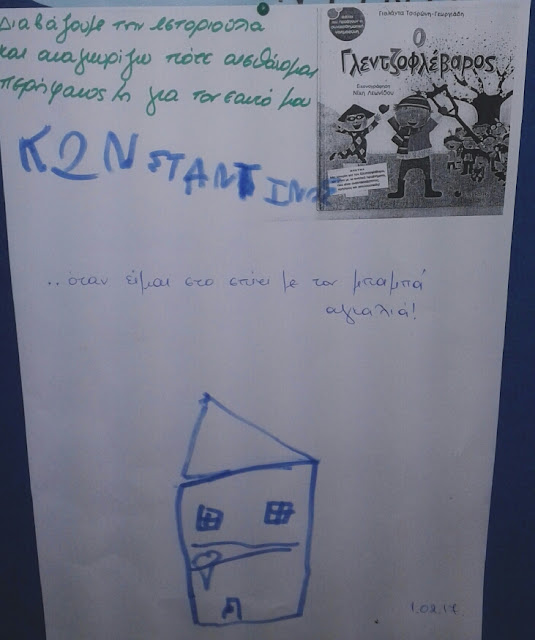 Διαβάζουμε την ιστοριούλα
και αναγνωρίζω πότε αισθάνομαι
περήφανος/η για τον εαυτό μου
Γιολάντα Τσορώνη-Γεωργιάδη
Ο
Γλεντζοφλέβαρος
Εικονογράφηση
Νίκη Λεωνίδου
ΚΩΝΣΤΑΝΤΙΝΟΣ
..όταν είμαι στο σπίτι με τον μπαμπά
αγκαλιά!
1.02.17